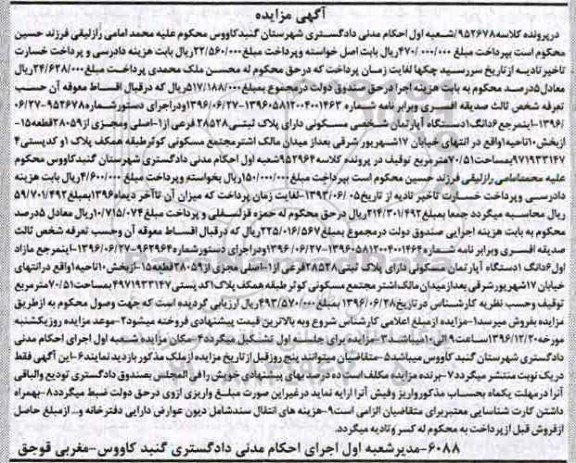 آگهی مزایده
درپرونده کلاسه ۹۵۲۶۷۸/شعبه اول احکام مدنی دادگستری شهرستان گنبدکاووس محکوم علیه محمد امامی رازلیقی فرزند حسین
محکوم است بپرداخت مبلغ ۴۷۰/۰۰۰/۰۰۰ ریال بابت اصل خواسته وپرداخت مبلغ ۲۲/۵۶۰/۰۰۰ریال بابت هزینه دادرسی و پرداخت خسارت
تاخیر تادیه ازتاریخ سررسید چکها لغایت زمان پرداخت که درحق محکوم له محسن ملک محمدی پرداخت مبلغ ۲۴/۶۲۸/۰۰۰ریال
معادل ۵درصد محکوم به بابت هزینه اجرا درحق صندوق دولت درمجموع بمبلغ ۵۱۷/۱۸۸/۰۰۰ریال که درقبال اقساط معوقه آن حسب
تعرفه شخص ثالث صدیقه افسری وبرابر نامه شماره ۱۳۹۶۰۵۸۱۲۰۰۴۰۰۱۴۶۳-۱۳۹۶/۰۶/۲۷ ودراجرای دستورشماره ۹۵۲۶۷۸-۰۶/۲۷
/۱۳۹۶-اینمرجع ۶دانگ ۱دستگاه آپارتمان شخصی مسکونی دارای پلاک ثبتی ۲۸۵۲۸ فرعی از ۱-اصلی ومجزی از ۲۸۰۵۹قطعه ۱۵-
ازبخش ۱۰ناحیه ۱واقع در انتهای خیابان ۱۷شهریور شرقی بعداز میدان مالک اشترمجتمع مسکونی کوثرطبقه همکف پلاک ۱و کدپستی ۴
۹۷۱۹۳۳۱۴۷بمساحت ۷۰/۵۱مترمربع توقیف در پرونده کلاسه ۹۵۲۹۶۴شعبه اول احکام مدنی دادگستری شهرستان گنبدکاووس محکوم
علیه محمدامامی رازلیقی فرزند حسین محکوم است بپرداخت مبلغ ۱۵۰/۰۰۰/۰۰۰ریال بخواسته وپرداخت مبلغ ۴/۶۰۰/۰۰۰ریال بابت هزینه
دادرسی وپرداخت خسارت تاخیر تادیه از تاریخ ۱۳۹۳/۰۶/۰۵-لغایت زمان پرداخت که میزان آن تاآخر دیماه ۱۳۹۶بمبلغ ۵۹/۷۰۱/۴۹۲
ریال محاسبه میگردد جمعا بمبلغ ۲۱۴/۳۰۱/۴۹۲ریال درحق محکوم له حمزه قزلسفلی و پرداخت مبلغ ۱۰/۷۱۵/۰۷۴ریال معادل ۵درصد
محکوم به بابت هزینه اجرایی صندوق دولت درمجموع بمبلغ ۲۲۵/۰۱۶/۵۶۷ریال که درقبال اقساط معوقه آن وحسب تعرفه شخص ثالث
صدیقه افسری وبرابر نامه شماره ۱۳۹۶۰۵۸۱۲۰۰۴۰۰۱۴۶۴-۱۳۹۶/۰۶/۲۷ودراجرای دستورشماره ۹۶۲۹۶۴-۱۳۹۶/۰۶/۲۷-اینمرجع مازاد
اول ۶دانگ ۱دستگاه آپارتمان مسکونی دارای پلاک ثبتی ۲۸۵۲۸فرعی از ۱-اصلی مجزی از ۲۸۰۵۹قطعه ۱۵-ازبخش ۱۰ناحیه ۱واقع درانتهای
خیابان ۱۷شهریورشرقی بعدازمیدان مالک اشترمجتمع مسکونی کوثرطبقه همکف پلاک ۱کدپستی ۴۹۷۱۹۳۳۱۴۷بمساحت ۷۰/۵۱مترمربع
توقیف وحسب نظریه کارشناس درتاریخ ۱۳۹۶/۰۶/۲۸ بمبلغ ۴۹۳/۵۷۰/۰۰۰ ریال ارزیابی گردیده است که جهت وصول محکوم به ازطریق
مزایده بفروش میرسد ۱-مزایده ازمبلغ اعلامی کارشناس شروع وبه بالاترین قیمت پیشنهادی فروخته میشود ۲-موعد مزایده روزیکشنبه
مورخه ۱۳۹۶/۱۲/۲۰ساعت ۹الی ۱۰میباشد ۳-مزایده برای جلسه اول تشکیل میگردد ۴-مکان مزایده شعبه اول اجرای احکام مدنی
دادگستری شهرستان گنبد کاووس میباشد ۵-متقاضیان میتوانند پنج روز قبل از تاریخ مزایده ازملک مذکور بازدید نمایند ۶-این آگهی فقط
دریک نوبت منتشر میگردد ۷-برنده مزایده مکلف است ده درصد بهای پیشنهادی خویش را فی المجلس بصندوق دادگستری تودیع والباقی
آنرا درمهلت یکماه بحساب مذکورواریز وفیش آنرا ارایه نماید درغیراین صورت مبلغ واریزی ازوی درحق دولت ضبط میگردد ۸-بهمراه
داشتن کارت شناسایی معتبر برای متقاضیان الزامی است ۹-هزینه های انتقال سندشامل دیون عوارض دارایی دفترخانه و... ازمبلغ حاصل
ازفروش قبل ازپرداخت به محکوم له کسر وتادیه میگردد.
۶۰۸۸-مدیرشعبه اول اجرای احکام مدنی دادگستری گنبد کاووس-مغربی قوجق